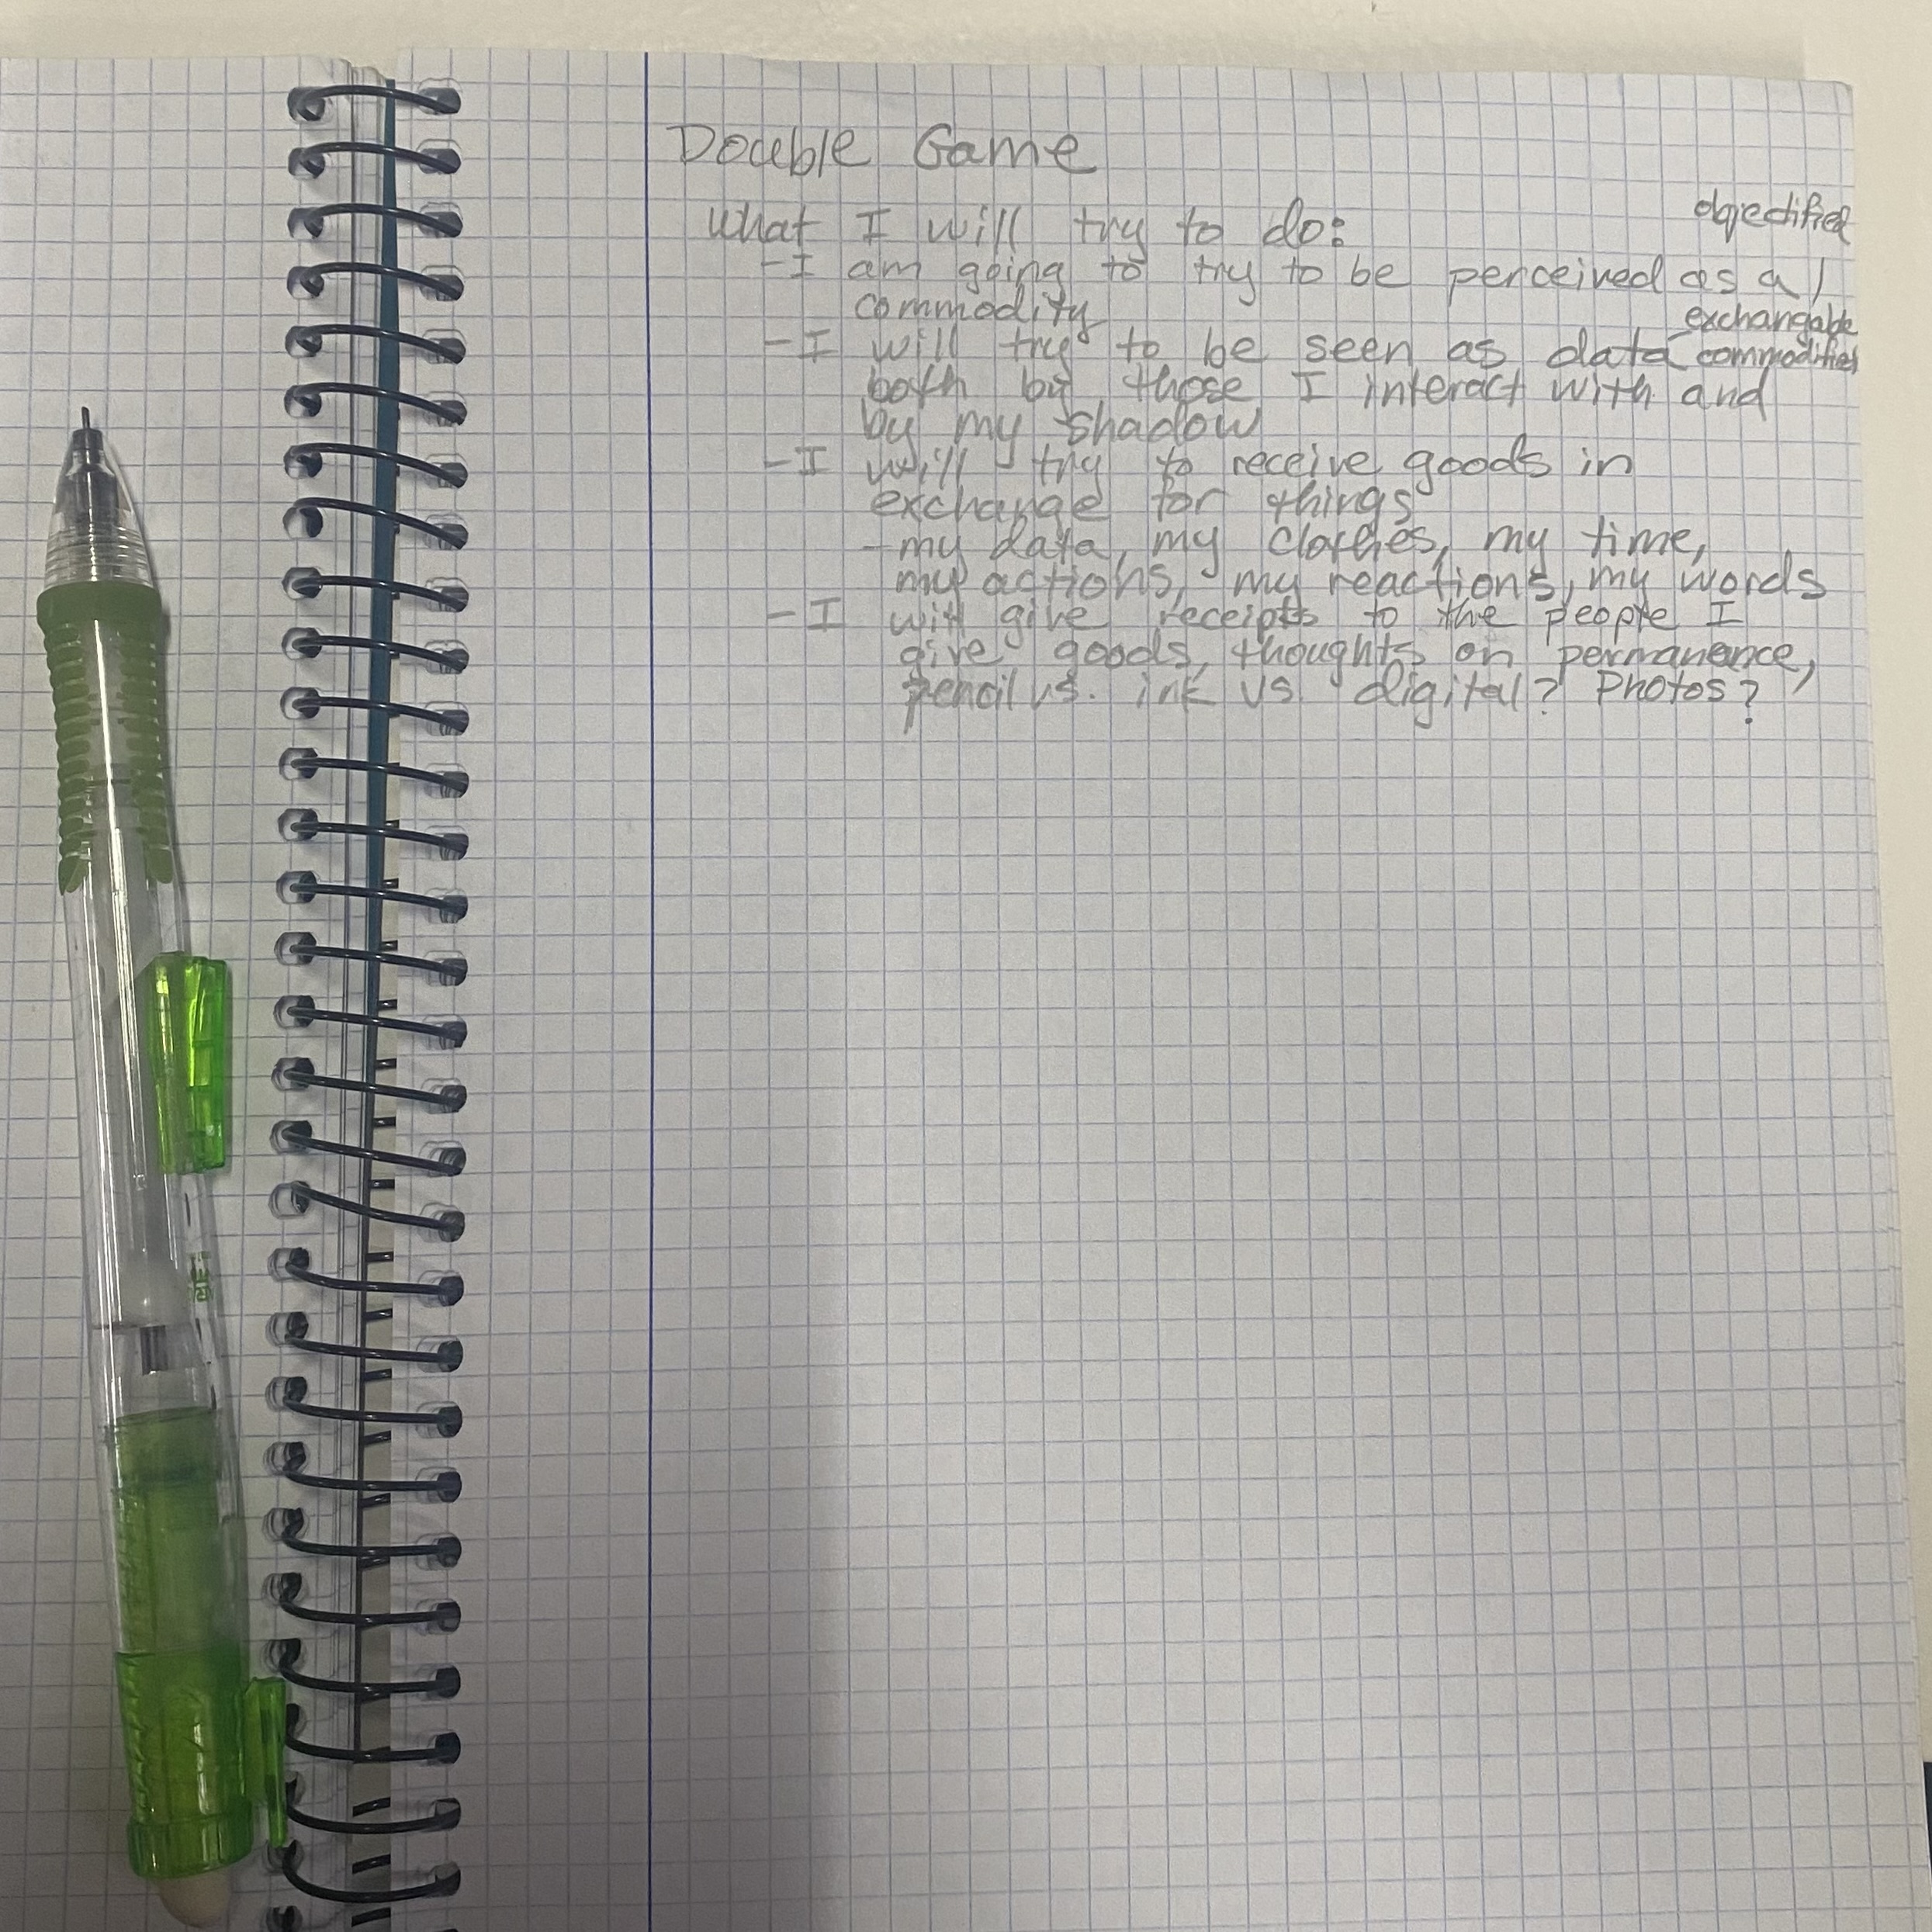 Double Game
What I will try to do:
objectified
- I am going to try to be perceived as a /
commodity
exchangable
- I will try to be seen as data commodified
both by those I interact with and
by my shadow
- I will try to receive goods in
exchange for things
- my data, my clothes, my time,
my actions, my reactions, my words
- I will give receipts to the people I
give goods, thoughts on permanence,
pencil vs. ink vs. digital? Photos?